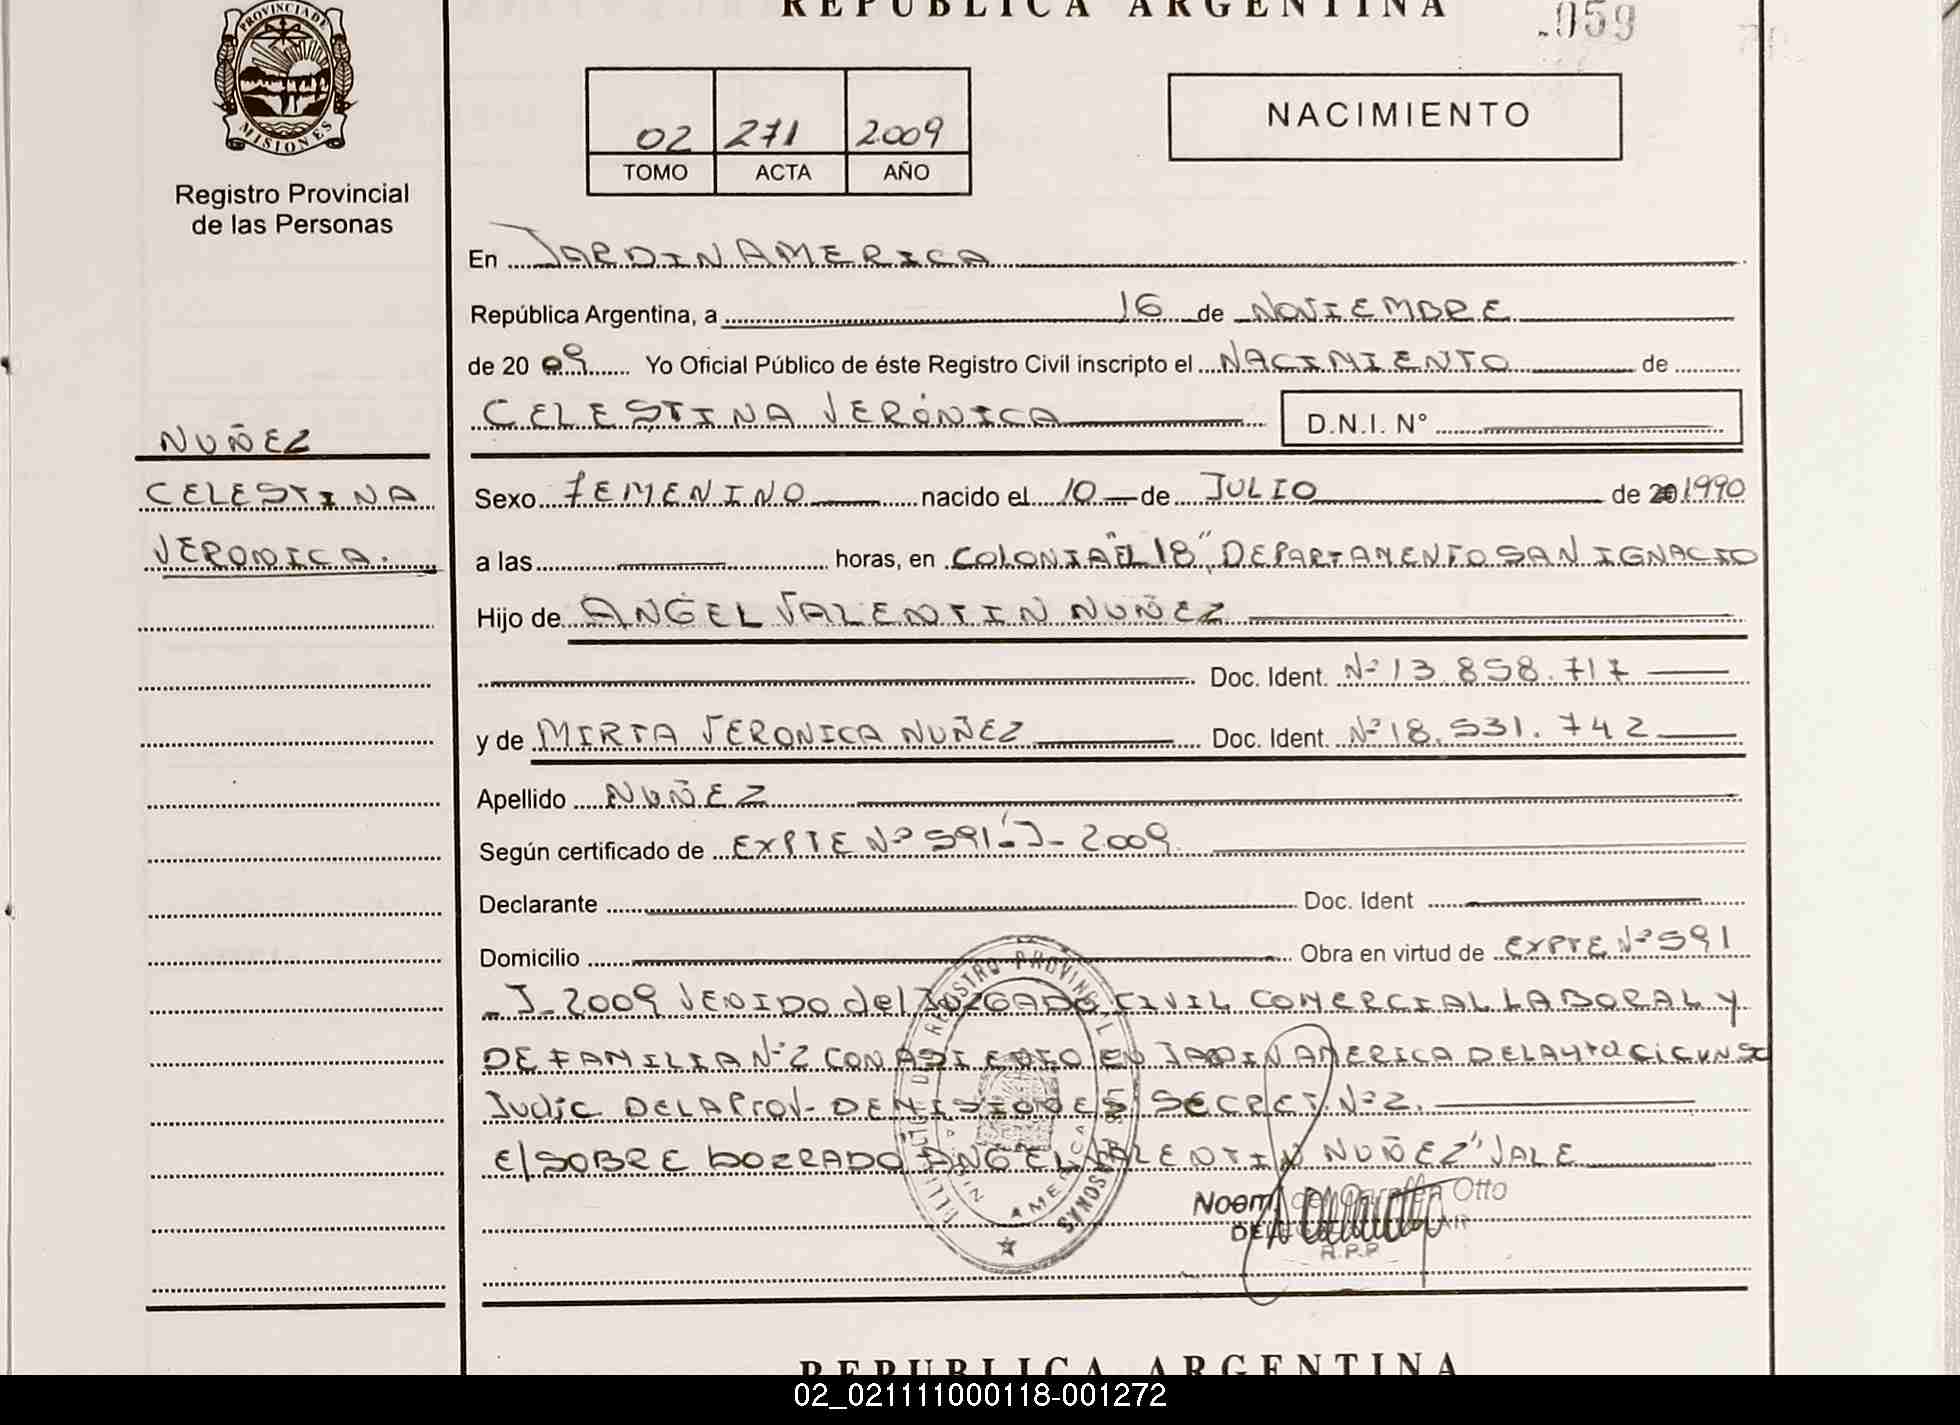 REPUBLICA ARGENTINA
.059
PROVINCIA DE
MISIONES
Registro Provincial
de las Personas
02 271 2009
TOMO ACTA AÑO
NACIMIENTO
En JARDIN AMERICA
República Argentina, a 16 de NOVIEMBRE
de 20 09 Yo Oficial Público de éste Registro Civil inscripto el NACIMIENTO de
CELESTINA VERÓNICA D.N.I. N°
NUÑEZ
CELESTINA
VERONICA.
Sexo FEMENINO nacido el 10 de JULIO de 20 1990
a las horas, en COLONIA "EL 18", DEPARTAMENTO SAN IGNACIO
Hijo de ANGEL VALENTIN NUÑEZ
Doc. Ident. Nº 13.858.717
y de MIRTA VERONICA NUÑEZ Doc. Ident. Nº 18.531.742
Apellido NUÑEZ
Según certificado de EXPTE Nº 591-J-2009
Declarante Doc. Ident
Domicilio Obra en virtud de EXPTE Nº 591
-J-2009 VENIDO del JUZGADO CIVIL COMERCIAL LABORAL Y
DE FAMILIA Nº 2 CON ASIENTO EN JARDIN AMERICA DE LA 4ta CICUNSC
Judic DE LA PROV. DE MISIONES SECRET. Nº 2.
El SOBRE BORRADO ANGEL VALENTIN NUÑEZ" VALE
REGISTRO PROVINCIAL DE LAS PERSONAS
AMERICA
Noemi Otto
R.P.P
REPUBLICA ARGENTINA
02_021111000118-001272